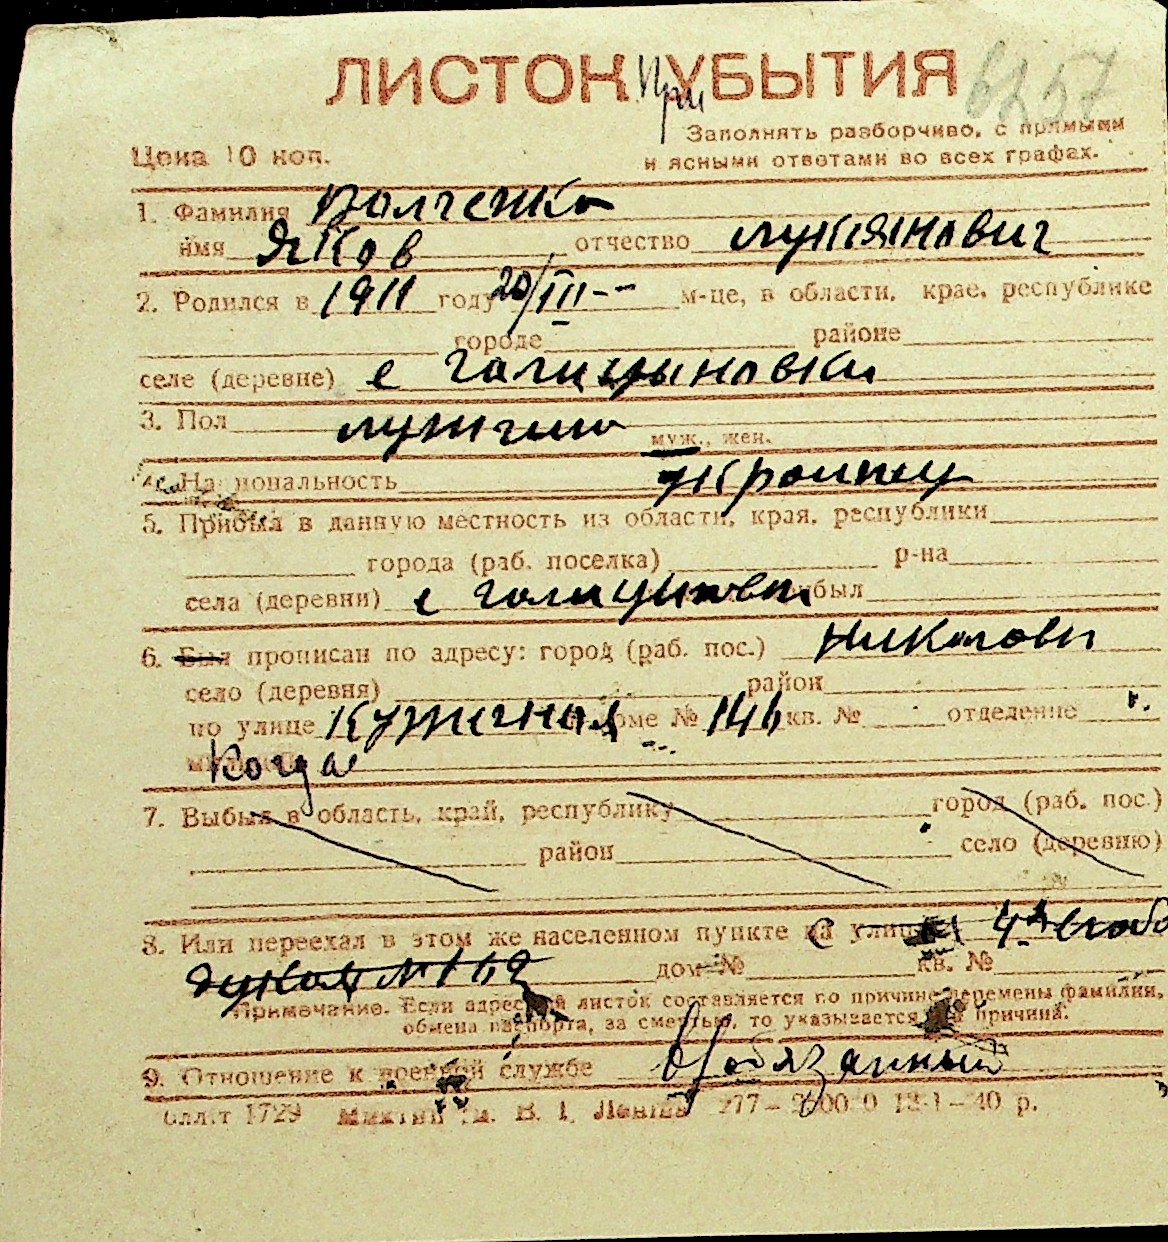 ЛИСТОК При УБЫТИЯ 6257
Заполнять разборчиво, с прямыми
Цена 10 коп. и ясными ответами во всех графах.
1. Фамилия Волченко
имя Яков отчество Лукянович
2. Родился в 1911 году 20/III-- м-це, в области, крае, республике
городе районе
селе (деревне) с Галицыновки
3. Пол мужчина муж., жен.
4. Национальность Украинец
5. Прибыл в данную местность из области, края, республики
города (раб. поселка) р-на
села (деревни) с Галицыновки был
6. Был прописан по адресу: город (раб. пос.) Николаев
село (деревня) район
по улице Кузнечная доме № 146 кв. № отделение
Когда
7. Выбыл в область, край, республику город (раб. пос.)
район село (деревню)
8. Или переехал в этом же населенном пункте на С улицу 4я слобо
дская № 162 дом № кв. №
Примечание. Если адресный листок составляется по причине перемены фамилии,
обмена паспорта, за смертью, то указывается причина.
9. Отношение к военной службе В/обязанный
1729 им. В. І. Леніна 277—